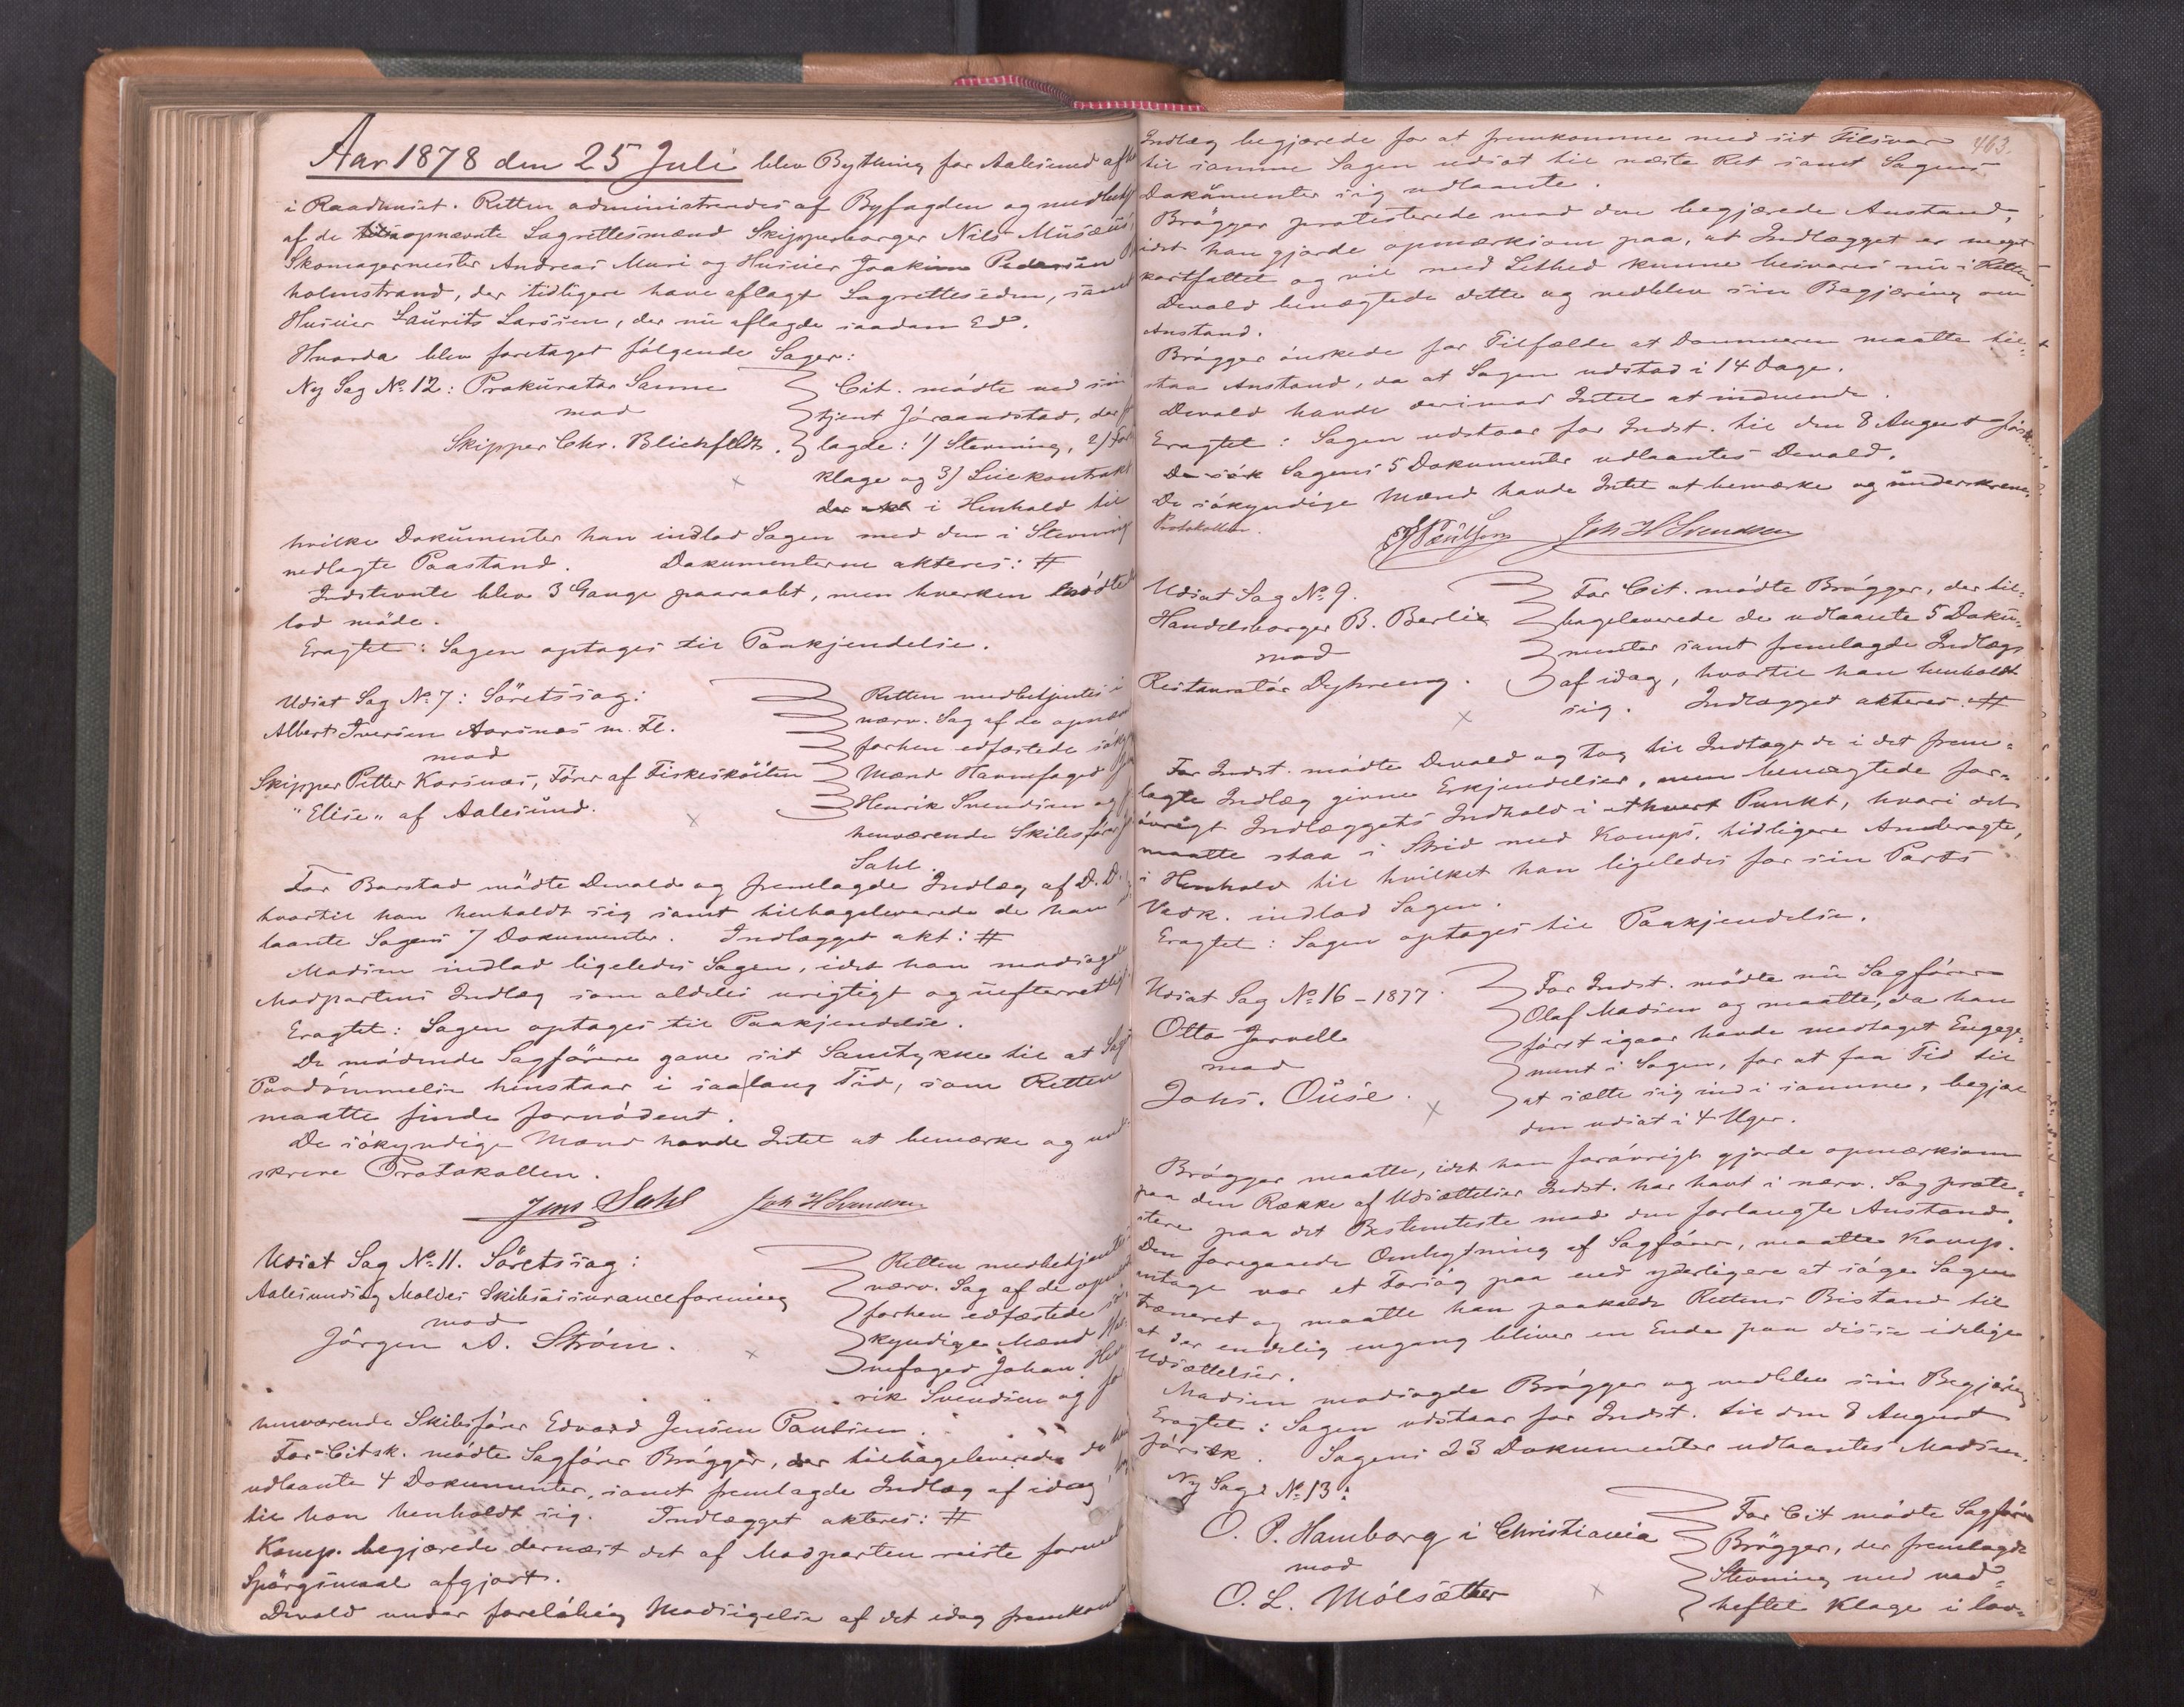 Aar 1878 den 25 Juli blev Bything for Aalesund
i Raadhuset. Retten administreredes af Byfogden og
af de opnævnte Lagrettesmænd Skipperborger Nils Musæus,
Skomagermester Andreas Muri og Huseier Joakim Pedersen
holmstrand, der tidligere have aflagt Lagretteseden, samt
Huseier Laurits Larssen, der nu aflagde saadan Ed.
Hvorda blev foretaget følgende Sager:
Ny Sag No 12: Prokurator Sanne
mod
Skipper Chr. Blichfeldt.
Cit. mødte ved sin
tjent Jöraandstad, der
lagde: 1/ Stevning, 2/
klage og 3/ Leiekontrakt
i Henhold til
hvilke Dokumenter han indlod Sagen med den i Stevning
nedlagte Paastand. Dokumenterne akteres: #
Indstevnte blev 3 Gange paaraabt, men hverken mødte
lod møde.
Eragtet: Sagen optages til Paakjendelse.
Udsat Sag No 7: Söretssag:
Albert Iversen Aarsnes m. Fl.
mod
Skipper Petter Korsnes, Förer af Fiskesköiten
"Elise" af Aalesund.
Retten medbetjentes i
nærv. Sag af de
forhen edfæstede
Mænd Havnefoged
Henrik Svendsen og
henværende Skibsfører
Sahl.
For Barstad mödte Devold og fremlagde Indlæg af D. D.
hvortil han henholdt sig samt tilbageleverede de ham
laante Sagens 7 Dokumenter. Indlægget akt: #
Madsen indlod ligeledes Sagen, idet han modsagde
Modpartens Indlæg som aldeles urigtigt og uefterretteligt.
Eragtet: Sagen optages til Paakjendelse.
De mødende Sagførere gave sit Samtykke til at
Paadømmelse henstaar i saalang Tid, som Retten
maatte finde fornødent.
De søkyndige Mænd havde Intet at bemærke og
skreve Protokollen.
Jens Sahl Joh H Svendsen
Udsat Sag No 11. Söretssag:
Aalesunds og Moldes Skibsassuranceforening
mod
Jörgen A. Ström.
Retten medbetjentes
nærv. Sag af de
forhen edfæstede
kyndige Mænd
nefoged Johan
rik Svendsen og
henværende Skibsfører Edvard Jensen Paulsen.
For Citsk. mødte Sagfører Brøgger, der tilbageleverede
udlaante 4 Dokumenter, samt fremlagde Indlæg af idag,
til han henholdt sig. Indlægget akteres: #
Komp. begjærede dernæst det af Modparten reiste
Spørgsmaal afgjort.
Devold under foreløbig Modsigelse af det idag
463.
Indlæg begjærede for at fremkomme med sit Tilsvar
til samme Sagen udsat til næste Ret samt Sagens
Dokumenter sig udlaante.
Brøgger protesterede mod den begjærede Anstand,
idet han gjorde opmærksom paa, at Indlægget er meget
kortfattet og vil med Lethed kunne besvares nu i Retten.
Devold benægtede dette og nedblev sin Begjæring om
Anstand.
Brøgger ønskede for Tilfælde at Dommeren maatte til-
staa Anstand, da at Sagen udstod i 14 Dage.
Devold havde derimod Intet at indvende.
Eragtet: Sagen udstaar for Indst. til den 8 August förstk.
Sagens 5 Dokumenter udlaantes Devold.
De søkyndige Mænd havde Intet at bemærke og underskreve
Protokollen.
Joh H Svendsen
Udsat Sag No 9.
Handelsborger B. Berlin
mod
Restauratør Dybreeng.
For Cit. mødte Brøgger, der til-
bageleverede de udlaante 5 Doku-
menter samt fremlagde Indlæg
af idag, hvortil han henholdt
sig. Indlægget akteres. #
For Indst. mødte Devold og tog til Indtægt de i det frem-
lagte Indlæg givne Erkjendelser, men benægtede for-
øvrigt Indlæggets Indhold i ethvert Punkt, hvori det
maatte staa i Strid med Komps. tidligere Anbragte,
i Henhold til hvilket han ligeledes for sin Parts
Vedk. indlod Sagen.
Eragtet: Sagen optages til Paakjendelse.
Udsat Sag No 16 - 1877.
Otto Jervell
mod
Johs. Ouse.
For Indst. mødte nu Sagfører
Olaf Madsen og maatte, da han
først igaar havde modtaget Engage-
ment i Sagen, for at faa Tid til
at sætte sig ind i samme, begjæ
den udsat i 4 Uger.
Brøgger maatte, idet han forøvrigt gjorde opmærksom
paa den Række af Udsættelser Indst. har havt i nærv. Sag prote-
stere paa det Bestemteste mod den forlangte Anstand.
Den foregaaede Ombytning af Sagfører, maatte Komp.
antage var et Forsøg paa end yderligere at søge Sagen
træneret og maatte han paakalde Rettens Bistand til
at der endelig engang bliver en Ende paa disse idelige
Udsættelser.
Madsen modsagde Brøgger og nedblev sin Begjæring
Eragtet: Sagen udstaar for Indst. til den 8 August
förstk. Sagens 23 Dokumenter udlaantes Madsen.
Ny Sag No 13:
O. P. Hamborg i Christiania
mod
O. L. Mölsæther
For Cit mødte Sagfører
Brøgger, der fremlagde
Stevning med ved-
heftet Klage i lov-